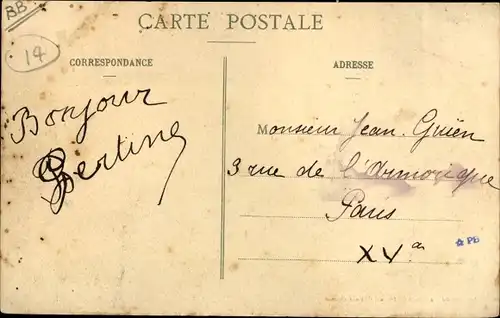 BB
14
CARTE POSTALE
CORRESPONDANCE
ADRESSE
Bonjour
Bertine
Monsieur Jean Guien
3 rue de l'Armorique
Paris
XVe
☆ Pb